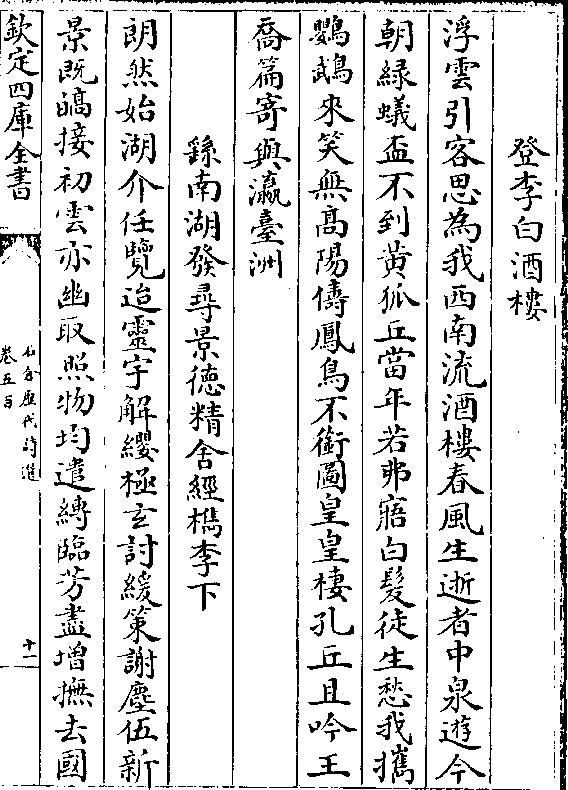 登李白酒樓
浮雲引客思為我西南流酒樓春風生逝者中泉遊今
朝緑蟻盃不到黄狐丘當年若弗寤白髮徒生愁我攜
鸚鵡來笑無髙陽儔鳳鳥不銜圖皇皇棲孔丘且吟王
喬篇寄與瀛臺洲
繇南湖發尋景德精舍經檇李下
朗然始湖介任覽迨靈宇解纓極玄討緩策謝塵伍新
景既皜接初雲亦幽取照物均遣縳臨芳盡增撫去國
欽定四庫全書
石倉歴代詩選
卷五百
十一